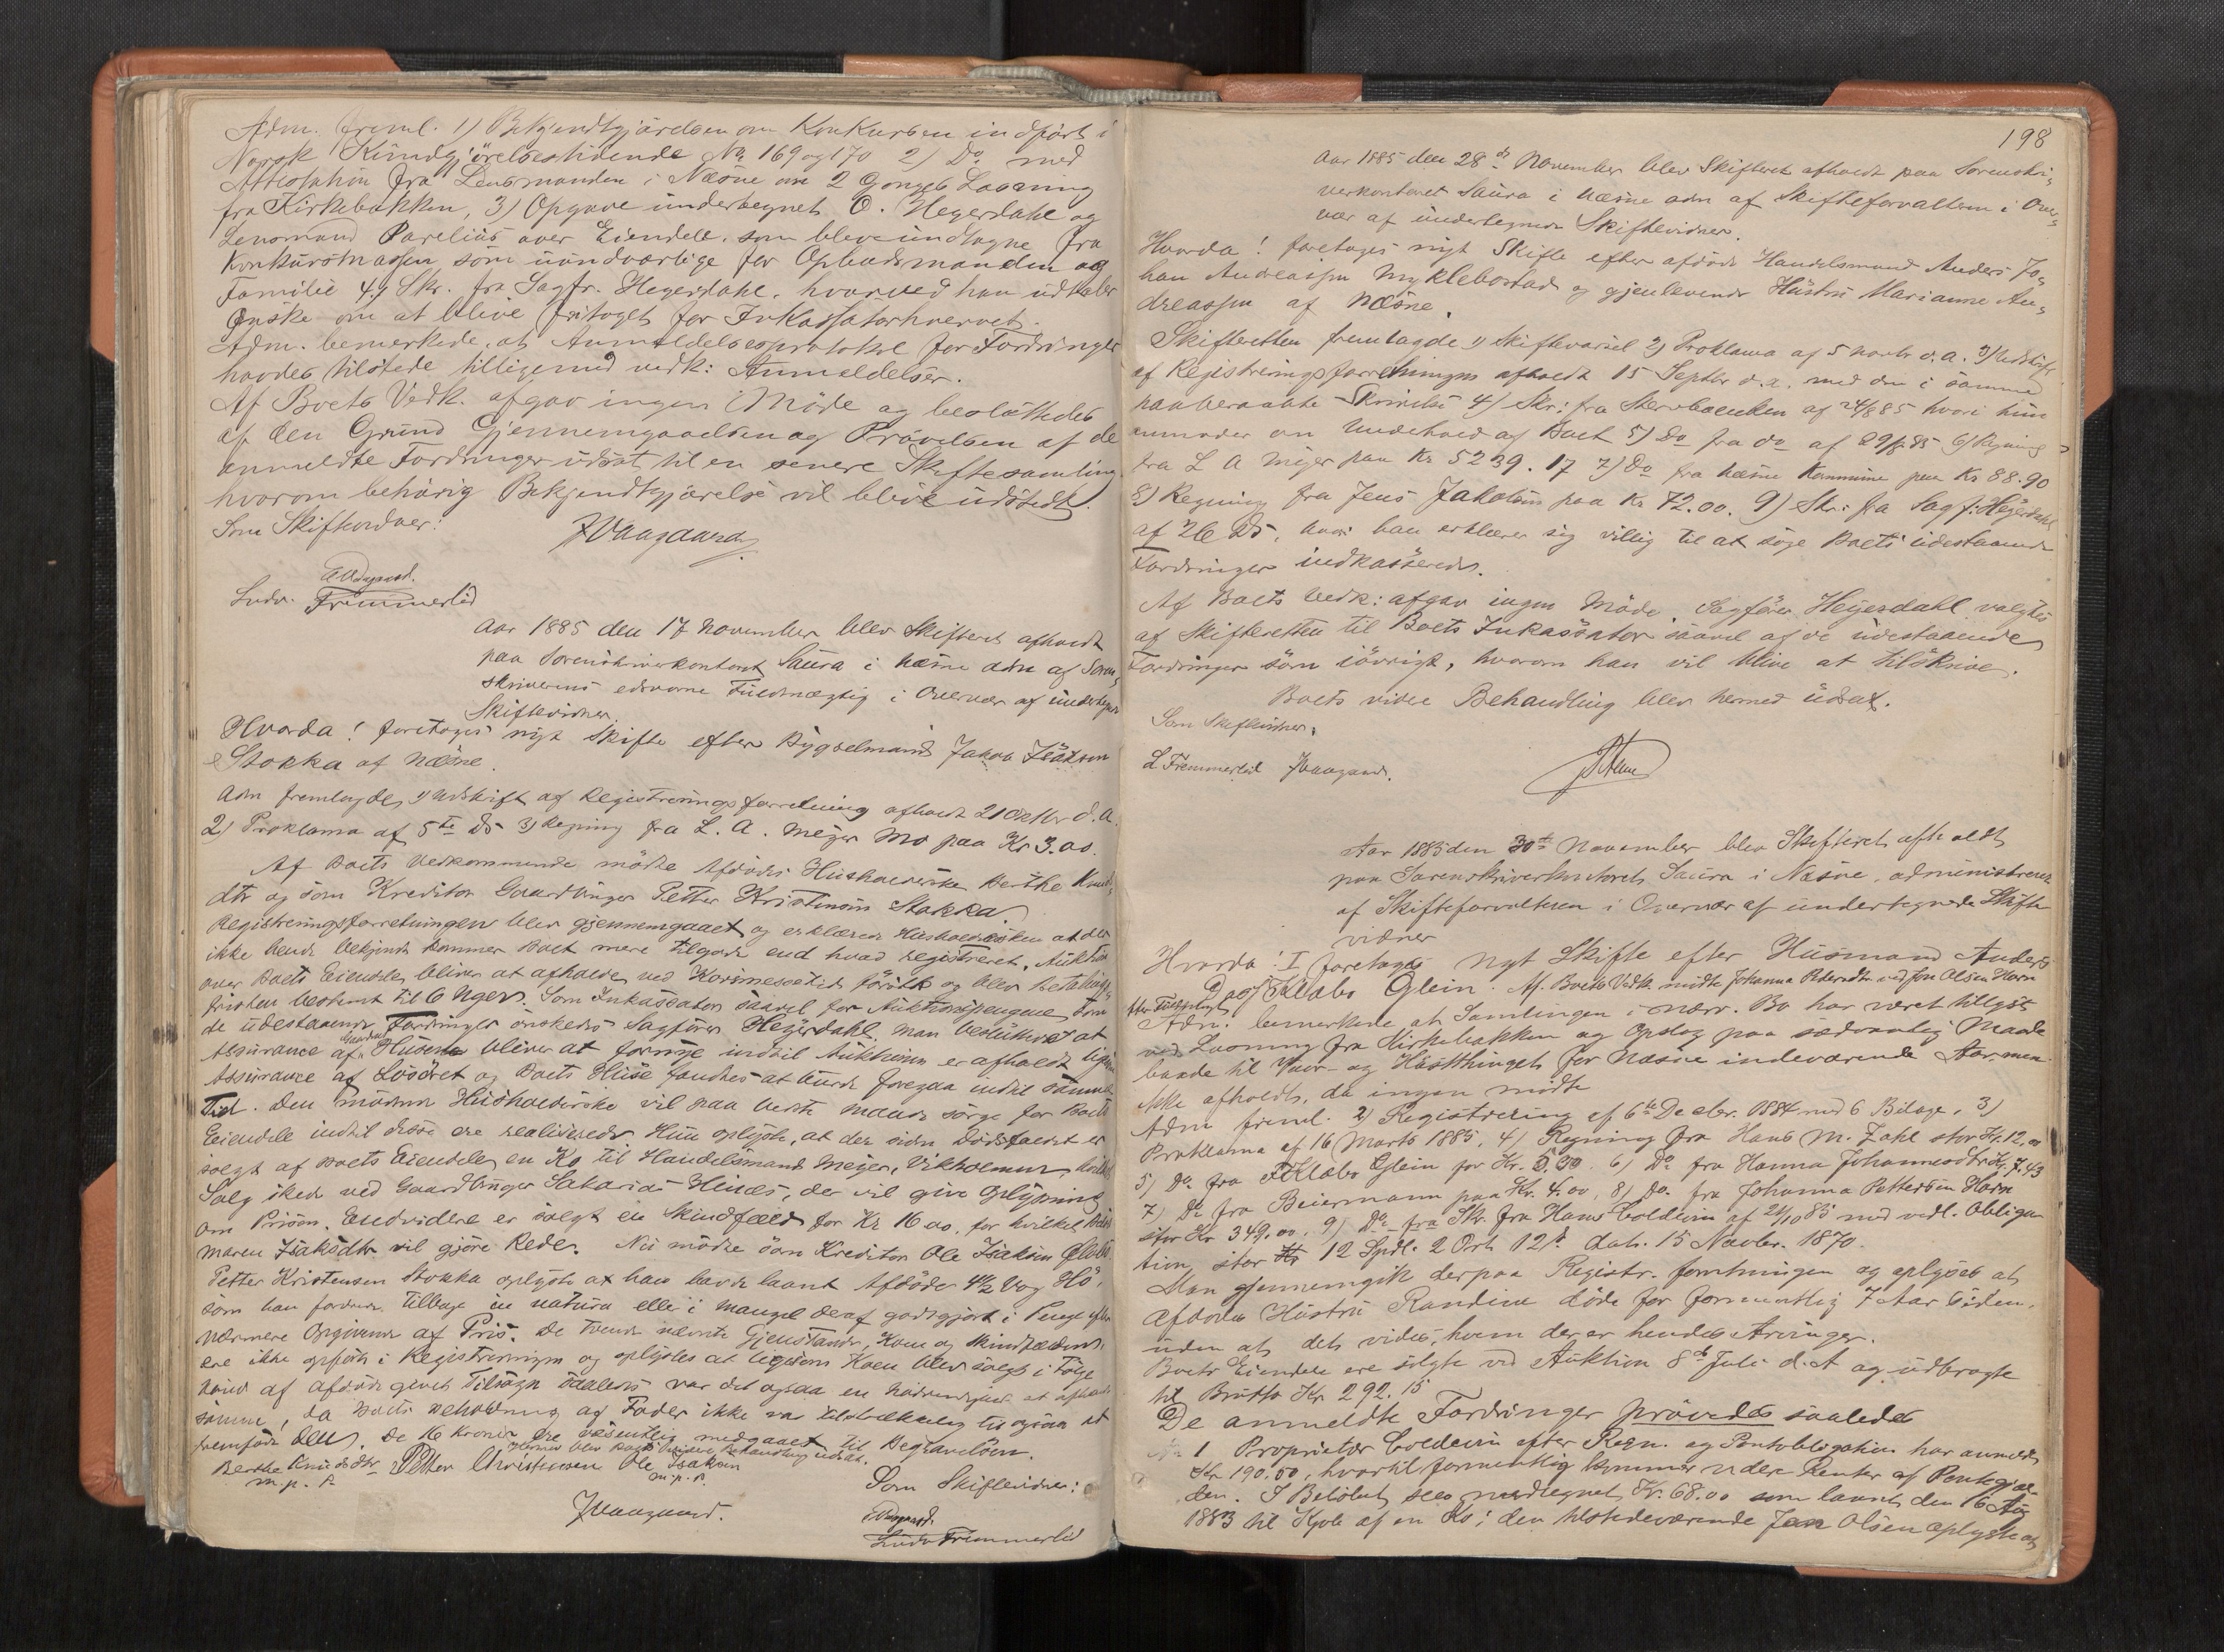 Adm. freml. 1) Bekjendtgjørelsen om Konkursen indført i
Norsk Kundgjørelsestidende No 169 og 170 2) Do med
Attestation fra Lensmanden i Næsne om 2 Ganges Læsning
fra Kirkebakken, 3) Opgave undertegnet O. Hegerdahl og
Lensmand Parelius over Eiendele, som bleve undtagne fra
Konkursmassen som uundværlige for Opbudsmanden og
Familie 4) Skr. fra Sagfr. Hegerdahl, hvorved han udtaler
Ønske om at blive fritaget for Inkassatorhvervet.
Adm. bemerkede, at Anmeldelsesprotokol for Fordringer
havdes tilstede tilligemed vedk: Anmeldelser.
Af Boets Vedk. afgav ingen Møde og besluttedes
af den Grund Gjennemgaaelsen og Prøvelsen af de
anmeldte Fordringer udsat til en senere Skiftesamling
hvorom behørig Bekjendtgjørelse vil blive udstedt.
Som Skiftevidner:
JVaagaard
Ludv. Fremmerlid
Aar 1885 den 17 November blev Skifteret afholdt
paa Sorenskriverkontoret Saura i Næsne adm af Soren-
skriverens edsvorne Fuldmægtig i Overvær af undertegn
Skiftevidner.
Hvorda! foretoges nyt Skifte efter Bygselmand Jakob Isaksen
Stokka af Næsne.
Adm fremlagde, 1) Udskrift af Registreringsforretning afholdt 21 Oktbr d. A.
2) Proklama af 5te ds 3) Regning fra L. A. Meyer Mo paa Kr 3.00.
Af Boets Vedkommende mødte Afdødes Husholderske Berthe Knuds-
dtr og som Kreditor Gaardbruger Petter Kristensen Stokka.
Registreringsforretningen blev gjennemgaaet og erklærede Husholdersken at der
ikke hende bekjendt kommer Boet mere tilgode end hvad registreret. Auktion
over Boets Eiendele bliver at afholde ved forst og blev Betalings-
fristen bestemt til 6 Uger. Som Inkassator saavel for Auktionspengene som
de udestaaende Fordringer ønskedes Sagfører Hegerdahl. Man besluttede at
Assurance af Husene bliver at fornye indtil Auktionen er afholdt ligesom
Assurance af Løsøret og Boets Huse fandtes at burde foregaa indtil samme
Tid. Den mødende Husholderske vil paa bedste Maade sørge for Boets
Eiendele indtil disse ere realiserede. Hun oplyste, at der siden Dødsfaldet er
solgt af Boets Eiendele en Ko til Handelsmand Meyer, Vikholmen, hvilket
Salg skede ved Gaardbruger Sakarias Hinæs, der vil give Oplysning
om Prisen. Endvidere er solgt en Skindfæld for Kr 16.00, for hvilket Beløb
Maren Isaksdtr vil gjøre Rede. Nu mødte som Kreditor Ole Isaksen
Petter Kristensen Stokka oplyste at han havde laant Afdøde 4½ Vog Hø,
som han fordrede tilbage in natura eller i Mangel deraf godtgjort i Penge efter
nærmere Opgivende af Pris. De tvende nævnte Gjenstande, Koen og Skindfælden,
ere ikke opført i Registreringen og oplystes at ligesom Koen blev solgt i Følge
af Afdøde givet Tilsagn saaledes var det ogsaa en Nødvendighed at afhænde
samme, da Boets Beholdning af Foder ikke var tilstrækkelig til at
fremføde den. De 16 Kroner ere væsentlig medgaaet til Begravelsen.
Hermed blev Boets videre Behandling udsat.
Berthe Knudsdtr Petter Christensen Ole Isaksen
m. p. P. m. p. P.
Som Skiftevidner:
JVaagaard.
Ludv Fremmerlid
198
Aar 1885 den 28de November blev Skifteret afholdt paa Sorenskri-
verkontoret Saura i Næsne adm af Skifteforvalteren i Over-
vær af undertegnede Skiftevidner.
Hvorda! foretoges nyt Skifte efter afdøde Handelsmand Anders Jo-
han Andreassen Myklebostad og gjenlevende Hustru Marianne An-
dreassen af Næsne.
Skifteretten fremlagde 1) Skiftevarsel 2) Proklama af 5 Novbr d. A. 3) Udskrift
af Registreringsforretningen afholdt 15 Septbr d. A. med den i samme
paaberaabte Skrivelse 4) Skr: fra Sterbøenken af 24/8 85 hvori hun
anmoder om Undehold af Boet 5) Do fra do af 29/8 85 6) Regning
fra L A Meyer paa Kr 5239.17 7) Do fra Næsne Kommune paa Kr 88.90
8) Regning fra Jens Jakobsen paa Kr 72.00. 9) Skr: fra Sagf: Hegerdahl
af 26 ds, hvori han erklærer sig villig til at søge Boets udestaaende
Fordringer indkasserede.
Af Boets Vedk: afgav ingen Møde. Sagfører Hegerdahl valgtes
af Skifteretten til Boets Inkassator saavel af de udestaaende
Fordringer som iøvrigt, hvorom han vil blive at tilskrive.
Boets videre Behandling blev hermed udsat.
Som Skiftevidner:
L Fremmerlid JVaagaard.
Aar 1885 den 30te November blev Skifteret afholdt
paa Sorenskriverkontoret Saura i Næsne, administreret
af Skifteforvalteren i Overvær af undertegnede Skifte
vidner
Hvorda: I foretoges nyt Skifte efter Husmand Anders
Dass Klæbo Glein. Af Boets Vedk mødte Johanna Petersdtr ved Jon Olsen Horn
Adm. bemerkede at Samlingen i nærv. Bo har været tillyst
ved Læsning fra Kirkebakken og Opslag paa sædvanlig Maade
baade til Vaar- og Høstthinget for Næsne indeværende Aar, men
ikke afholdt, da ingen mødte
Adm freml. 2) Registrering af 6te Decbr. 1884 med 6 Bilage, 3)
Proklama af 16 Marts 1885, 4) Regning fra Hans M. Zahl stor Kr. 12.00
5) Do. fra Klæbo Glein for Kr. 5.30. 6) Do fra Hanna Johannesdtr Kr. 7.43
7) Do fra Beiermann paa Kr. 4.00, 8) Do. fra Johanna Pettersen Horn
stor Kr 349.00. 9) Do fra Skr. fra Hans Coldevin af 21/10 85 med vedl. Obliga-
tion stor 12 Spdl. 2 Ort 12 s dat. 15 Novbr. 1870.
Man gjennemgik derpaa Registr. forretningen og oplystes at
Afdødes Hustru Randine døde for formentlig 7 Aar siden,
uden at det vides, hvem der er hendes Arvinger.
Boets Eiendele ere solgte ved Auktion 8de Juli d. A og udbragte
til Brutto Kr 292.15
De anmeldte Fordringer prøvedes saaledes
No 1 Proprietær Coldevin efter Regn. og Panteobligation har anmeldt
Kr 190.50, hvortil formentlig kommer videre Renter af Pantegjæl-
den. I Beløbet sees medregnet Kr. 68.00 som laant den 16 Aug
1883 til Kjøb af en Ko; den tilstedeværende Jon Olsen oplyste at